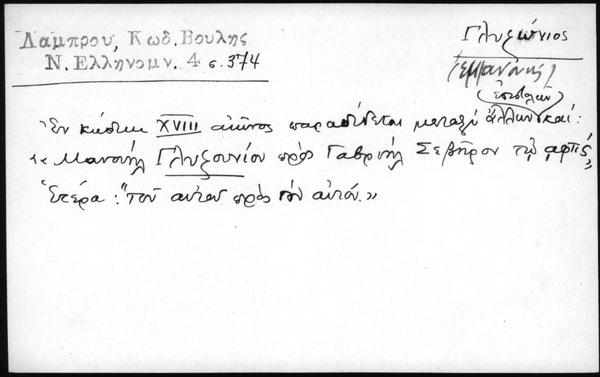 Λάμπρου, Κωδ. Βουλής
Ν. Ελληνομν. 4 σ. 374
Γλυζώνιος
(Εμμανουήλ)
(ἐπιστολῶν)
Ἐν κώδικι XVIII αἰῶνος παραδίδεται μεταξὺ ἄλλων καί:
"Μανουὴλ Γλυζουνίου πρὸς Γαβριὴλ Σεβῆρον
Ἑτέρα: "τοῦ αὐτοῦ πρὸς τὸν αὐτόν."